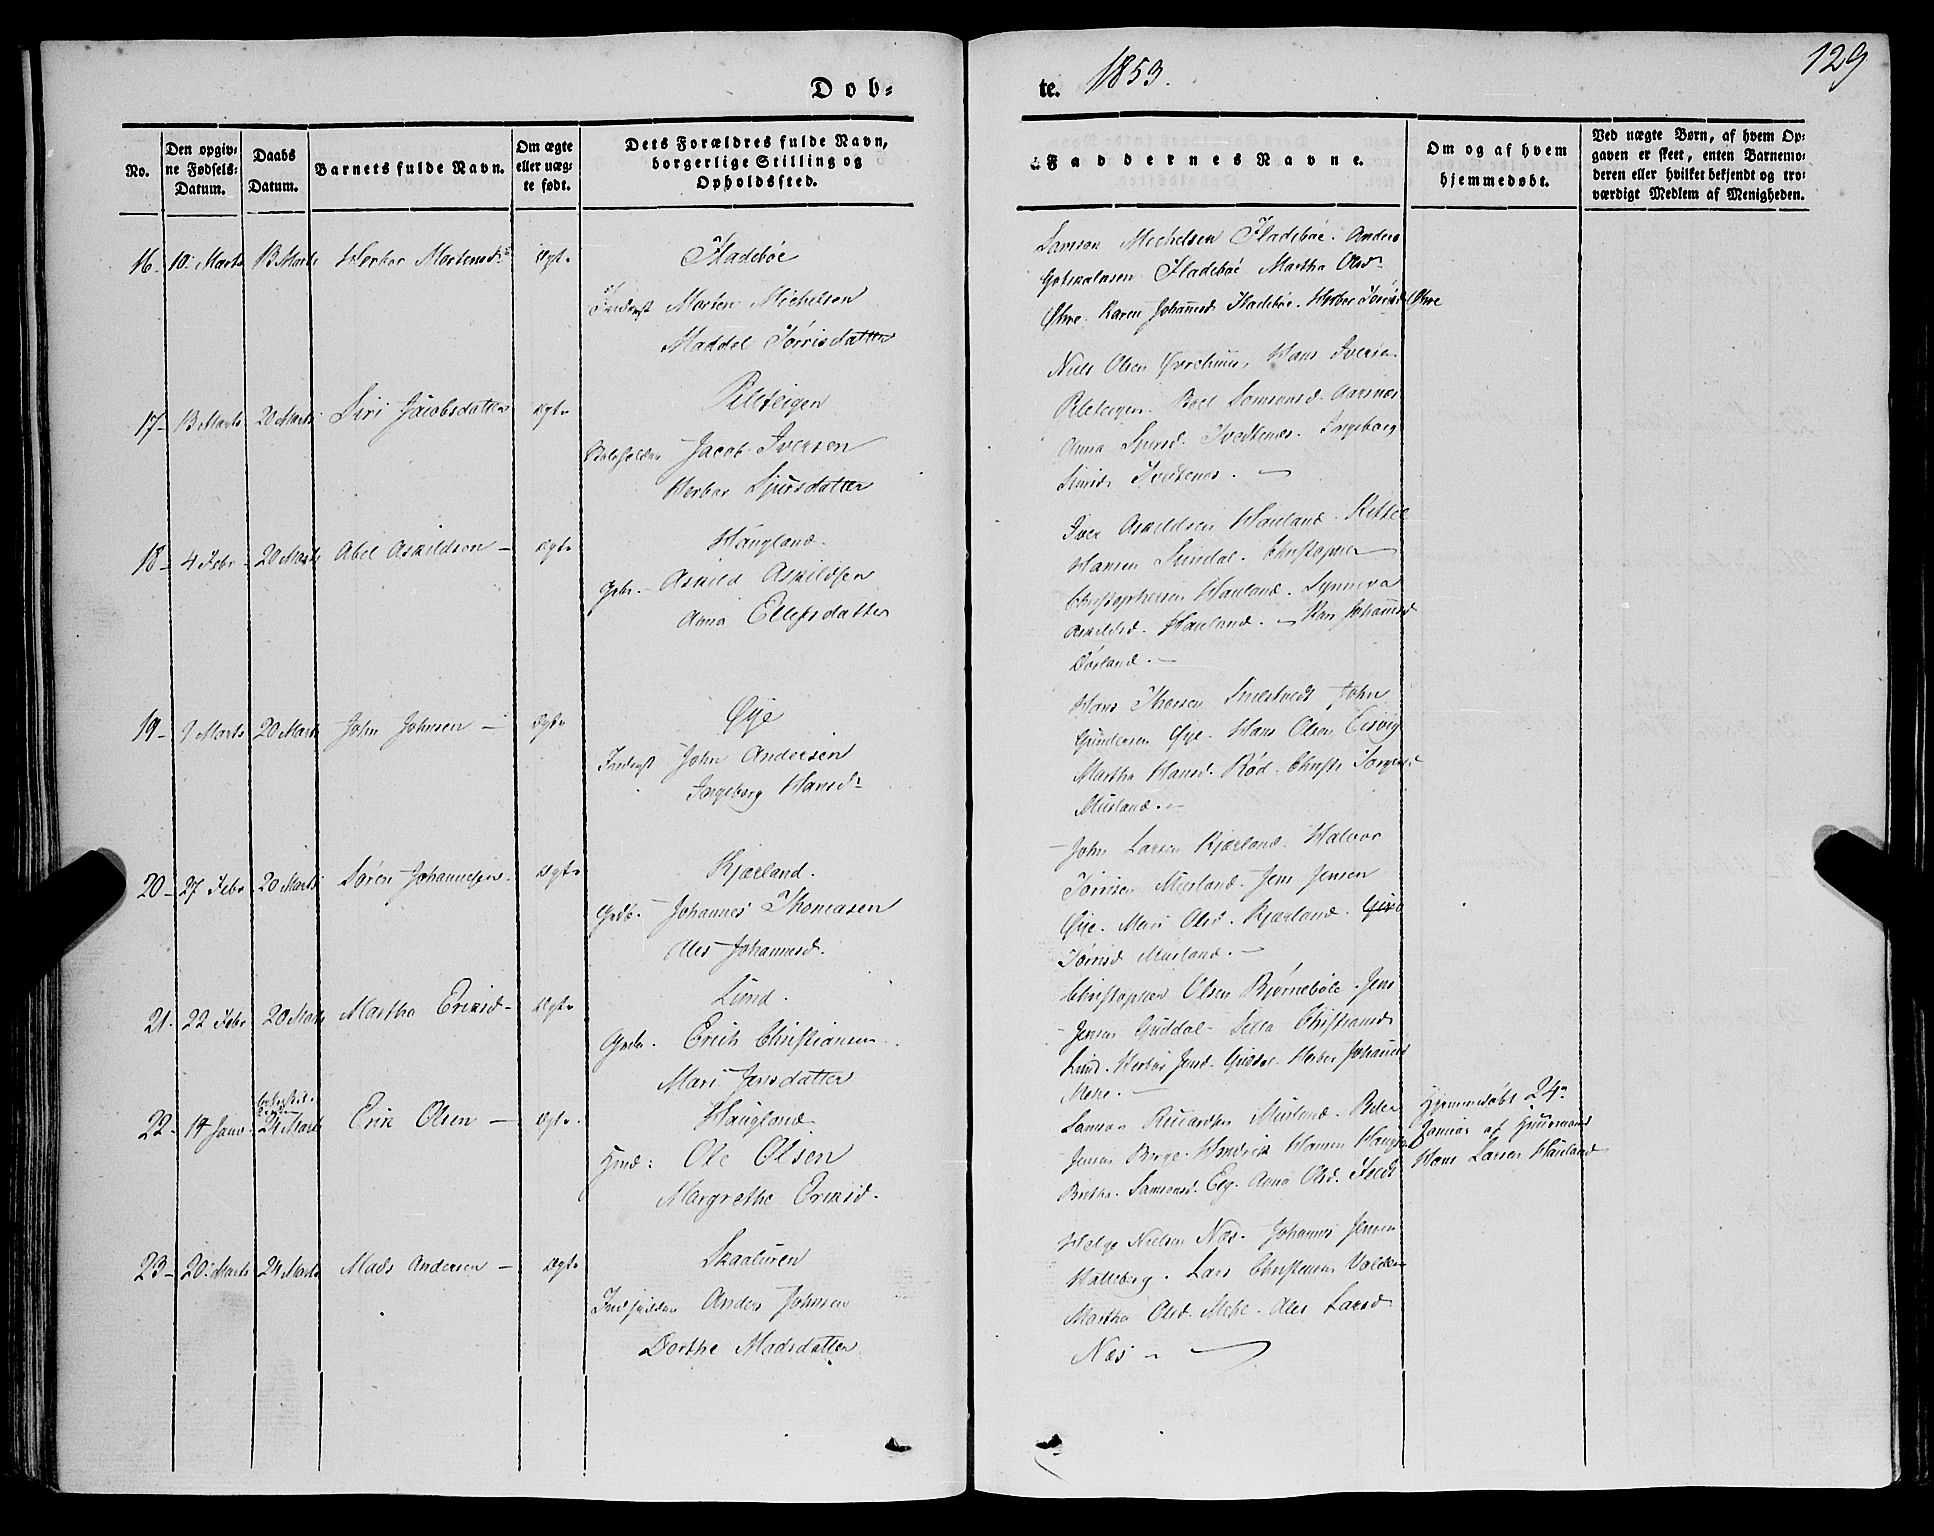 Døb-
te. 1853.
129
No.
Den opgiv-
ne Fødsels-
Datum.
Daabs
Datum.
Barnets fulde Navn.
Om ægte
eller uæg-
te født.
Dets Forældres fulde Navn,
borgerlige Stilling og
Opholdssted.
Faddernes Navne.
Om og af hvem
hjemmedøbt.
Ved uægte Børn, af hvem Op-
gaven er skeet, enten Barnemo-
deren eller hvilket bekjendt og tro-
værdigt Medlem af Menigheden.
16 10 Marts 13 Marts Herbor Mortensd. ægte Fladebøe
Morten Michelsen
Maddel Tørrisdatter
Samson Michelsen Fladebøe. Anders
Gotskalksen Fladebøe Martha Olsd.
Øhre. Karen Johannesd. Fladebøe. Herbor Tørrisd. Øhre
17 13 Marts 20 Marts Siri Jacobsdatter ægte Pileteigen
Jacob Iversen
Herbor Sjursdatter
Niels Olsen Hans Iversen
Pileteigen. Samsonsd. Aarsnes
Anna Sjursd. Tvedtenes. Ingeborg
Tvedtenes.
18 4 Febr 20 Marts Abel Askildsen ægte Haugland.
Gbr. Askild Askildsen
Anna Ellefsdatter
Iver Askildsen Hauland. Kittel
Hansen Sundal. Christopher
Christophersen Hauland. Synneva
Askildsd. Hauland. Kari Johannesd
19 9 Marts 20 Marts John Johnsen ægte Øye
Inderst John Andersen
Ingeborg Hansd.
Hans Thorsen John
Gundersen Øye. Hans Olsen Eisvig
Martha Hansd. Rød. Christi
Musland.
20 27 Febr 20 Marts Søren Johannesen ægte Kjærland.
Grdb. Johannes Thomasen
Ales Johannesd.
John Larsen Kjærland. Halvor
Tørrisen Musland. Jens Jensen
Øye. Mari Olsd. Kjærland. Giro
Tørrisd Musland.
21 22 Febr 20 Marts Martha Eriksd. ægte Lund.
Grdbr. Erich Christiansen
Mari Jensdatter
Christopher Olsen Bjørnebøle. Jens
Jensen Guddal. Sella Christiansd.
Lund. Herbor Jensd. Guddal. Herbor Johannesd
Mehe.
22 14 Janu 24 Marts Erik Olsen ægte Haugland
Hmd: Ole Olsen
Margrethe Eriksd.
Samson Musland. Peder
Jensen Berge. Hendrik Hansen Haugland
Brithe Samsonsd. Eeg. Anna Olsd.
Hjemmedøbt 24
Januar af Huusmand
Hans Larsen Hauland
23 20 Marts 24 Marts Mads Andersen ægte Skaaluren
Anders Johnsen
Dorthe Madsdatter
Helge Nielsen Næs. Johannes Jensen
Hatteberg. Lars Christensen Valden
Martha Olsd. Mehe. Ales Larsd.
Næs